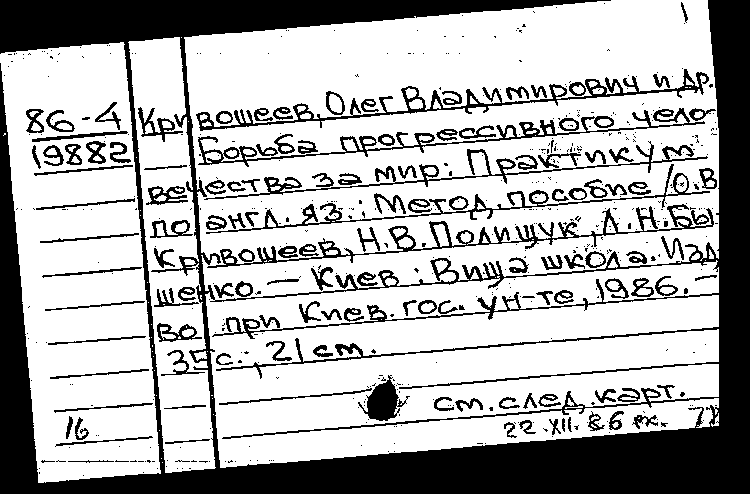 1
86-4 Кривошеев, Олег Владимирович и др.
19882 Борьба прогрессивного чело-
вечества за мир: Практикум
по англ. яз.: Метод. пособие / О.В.
Кривошеев, Н.В. Полищук, Л.Н. Бы-
шенко. — Киев: Вища школа. Изд-
во при Киев. гос. ун-те, 1986. —
35с.; 21 см.
см. след. карт.
16
22.XII.86